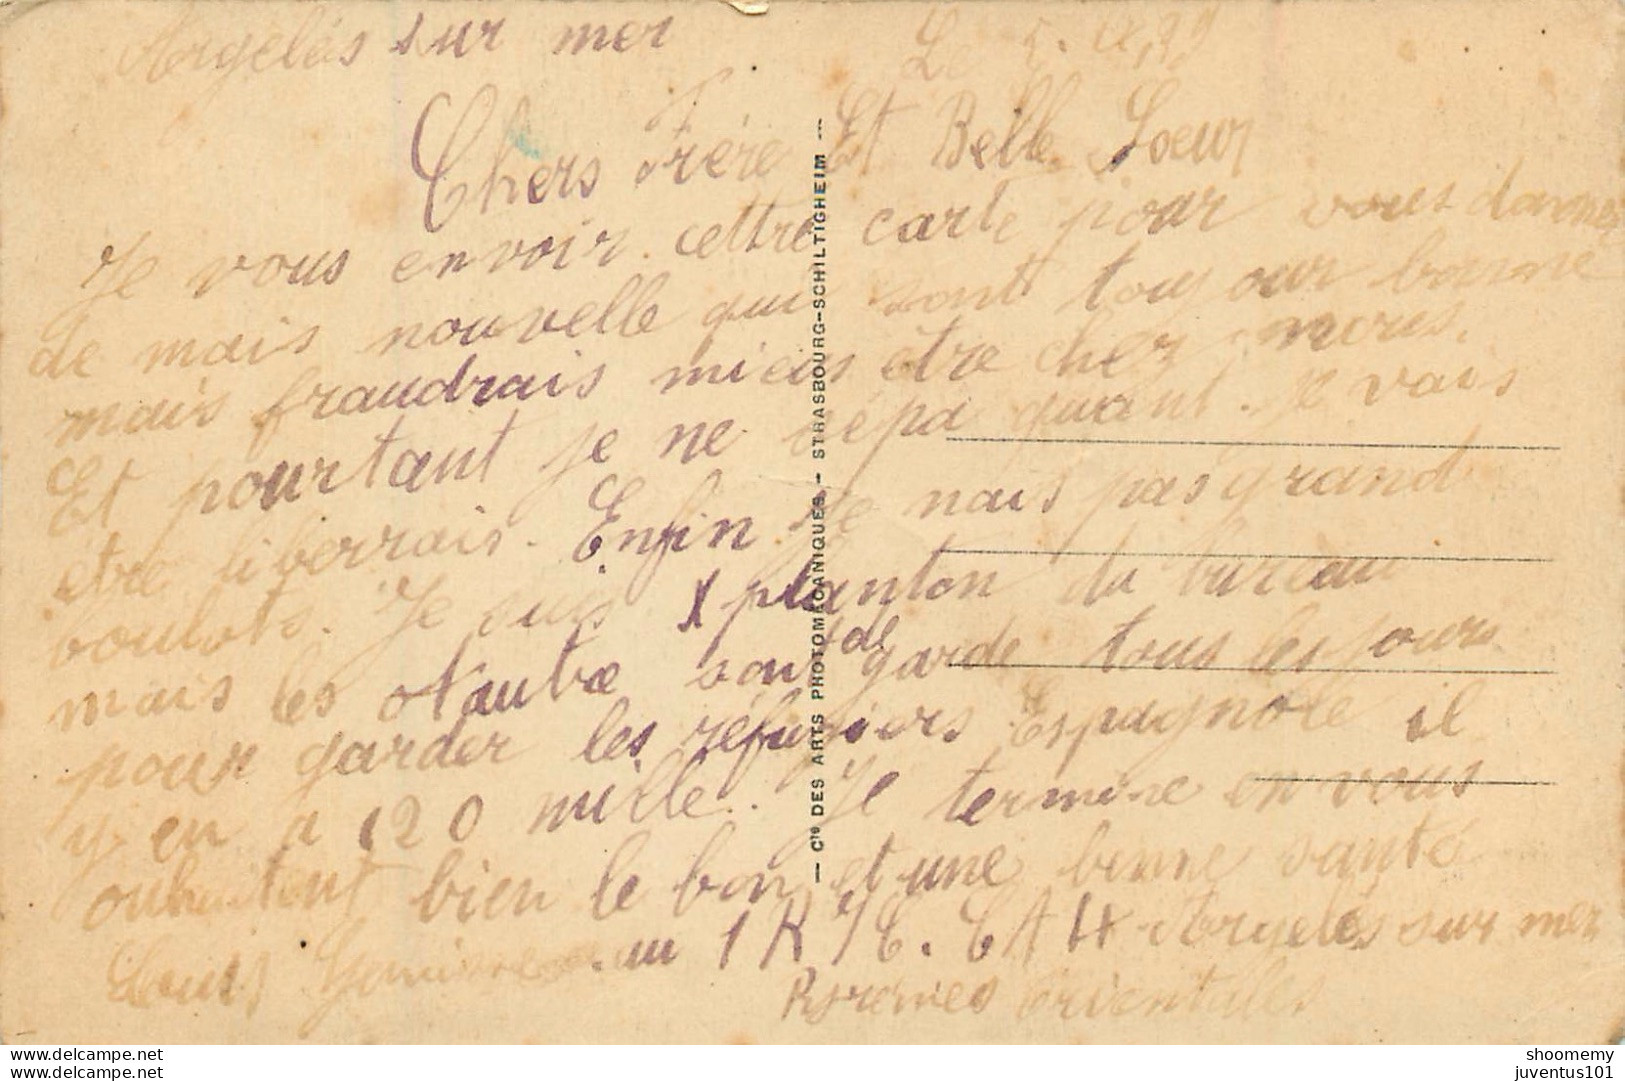 Argelés sur mer Le 5.
Chers Frère Et Belle Soeur
Je vous envoir cettre carte pour vous donner
de mais nouvelle qui sont toujour bonne
mais fraudrais mieus être cher nous.
Et pourtant je ne sépa quant. Je vais
être liberrais. Enfin Je nais pas grand
boulots. Je suis planton du bureau
mais les Nautre sont de garde tous les jours
pour garder les réfugiers Espagnole il
y en a 120 mille. Je termine en vous
ouhaitent bien le bon et une bonne santé
Louis au 1 R Argelés sur mer
Pyrenies Orientales
— Cie DES ARTS PHOTOMÉCANIQUES - STRASBOURG-SCHILTIGHEIM —
www.delcampe.com
www.delcampe.com
shoomemy
juventus101